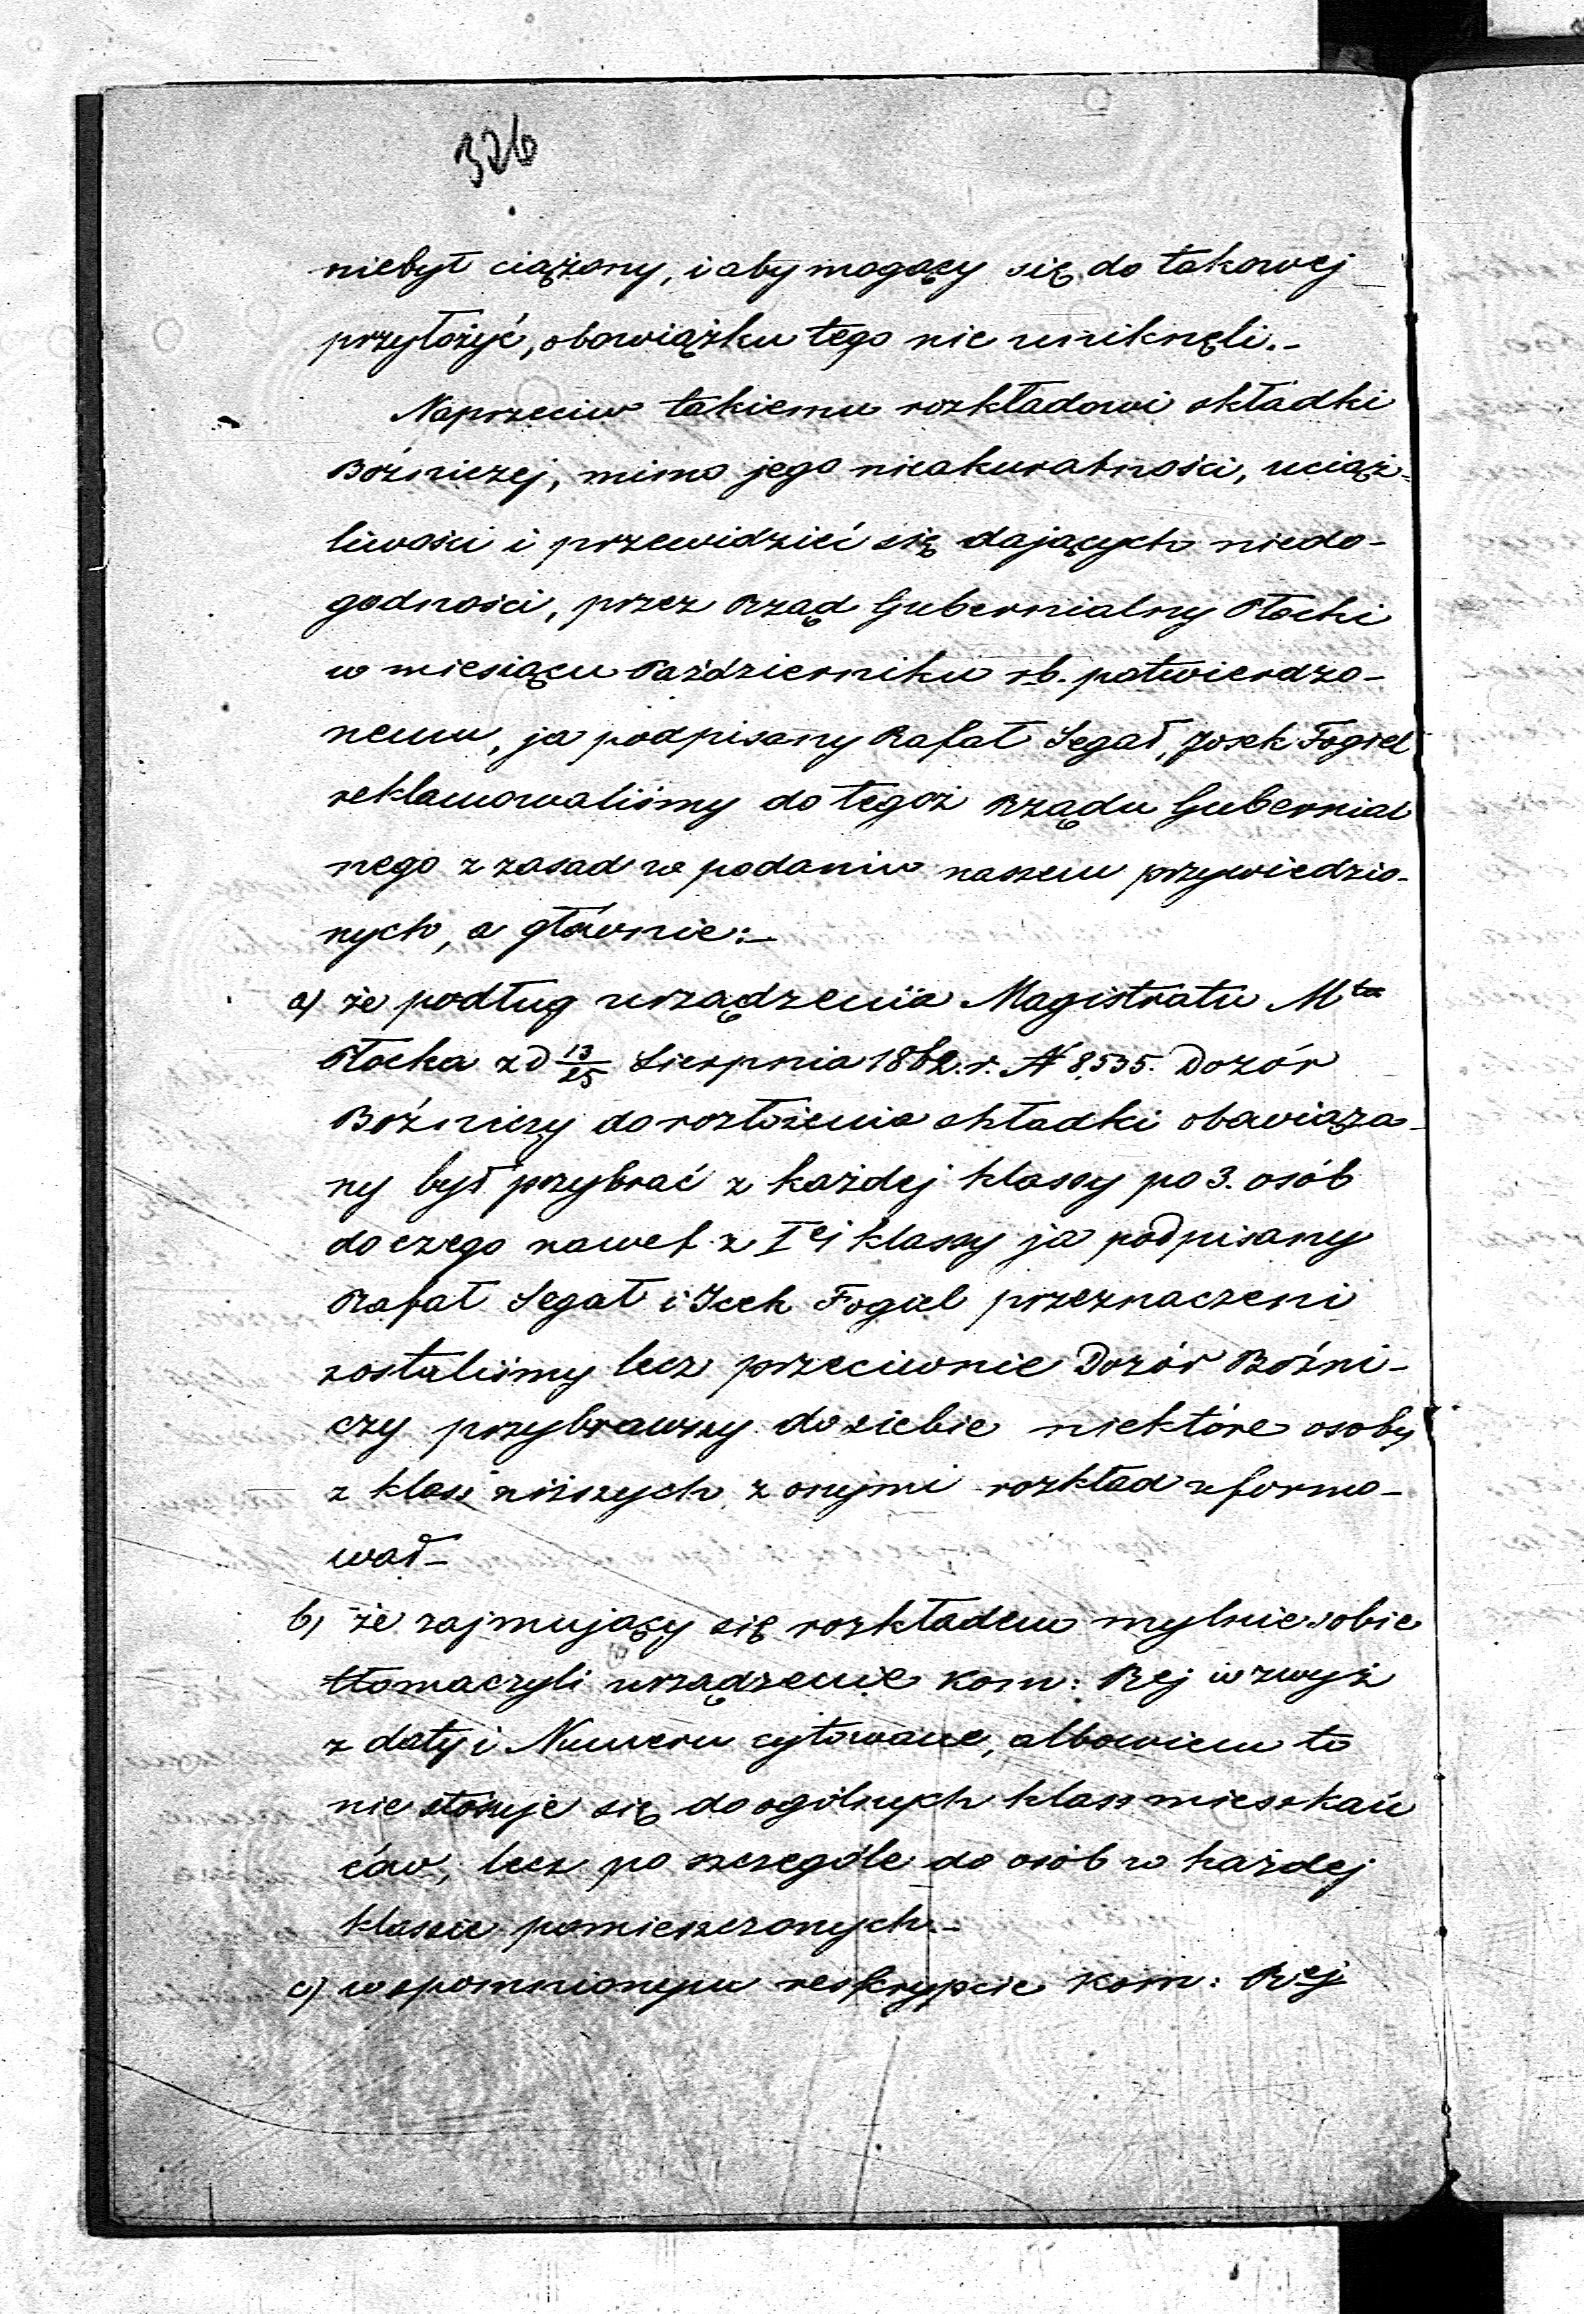 326
niebył ciążony, i aby mogący się do takowej
przyłożyć, obowiązku tego nie uniknęli.-
Naprzeciw takiemu rozkładowi składki
Bóźniczej, mimo jego nieakuratności, uciąż-
liwości i przewidzieć się dających niedo-
godności, przez Rząd Gubernialny Płocki
w miesiącu Październiku rb. potwierdzo-
nemu, ja podpisany Rafał Segał, Josek Fogiel
reklamowaliśmy do tegoż Rządu Gubernial
nego z zasad w podaniu naszem przywiedzio-
nych, a głównie:-
a) że podług urządzenia Magistratu Mta
Płocka z d 13/25 Sierpnia 1862. r. N 8,535. Dozór
Bóźniczy do rozłożenia składki obowiąza-
ny był przybrać z każdej klassy po 3. osób
do czego nawet z Iej klassy ja podpisany
Rafał Segał i Icek Fogiel przeznaczeni
zostaliśmy lecz przeciwnie Dozór Bóźni-
czy przybrawszy do siebie niektóre osoby
z klass niższych z onymi rozkład uformo-
wał-
b) że zajmujący się rozkładem mylnie sobie
tłomaczyli urządzenie Kom: Rej wzwyż
z daty i Numeru cytowane, albowiem to
nie stósuje się do ogólnych klass mieszkań
ców, lecz po szczególe do osób w każdej
klassie pomieszczonych.-
c) wspomnionym reskrypcie Kom: Rej